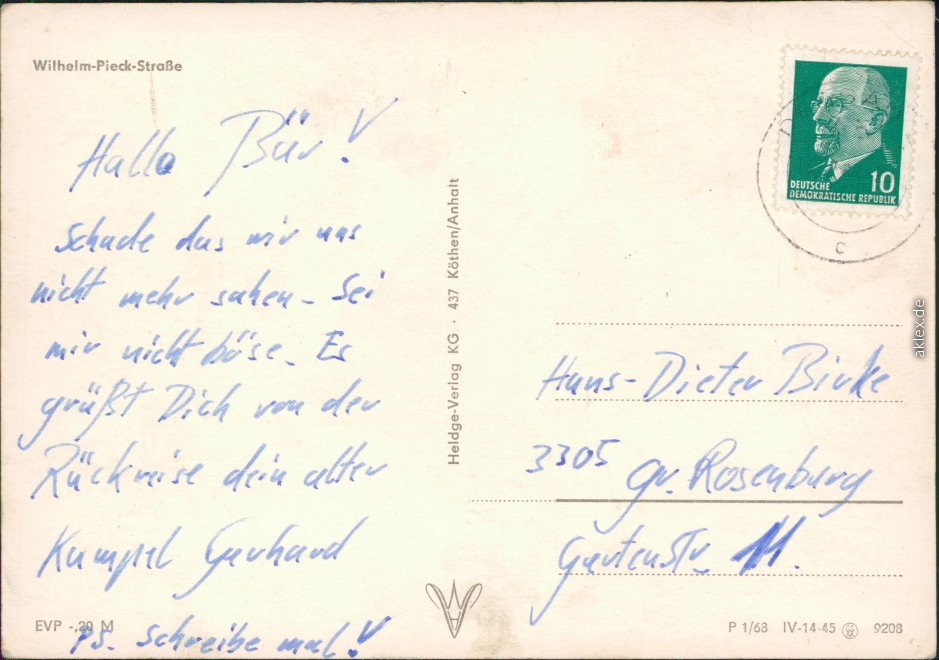 Wilhelm-Pieck-Straße
Hallo Bär!
Schade das wir uns
nicht mehr sahen. Sei
mir nicht böse. Es
grüßt Dich von der
Rückreise dein alter
Kumpel Gerhard
EVP -,20 M
PS. Schreibe mal!
Heldge-Verlag KG · 437 Köthen/Anhalt
10
DEUTSCHE
DEMOKRATISCHE REPUBLIK
c
Hans-Dieter Birke
3305 Gr. Rosenburg
Gartenstr. 11.
P 1/68 IV-14-45 9208
aklex.de